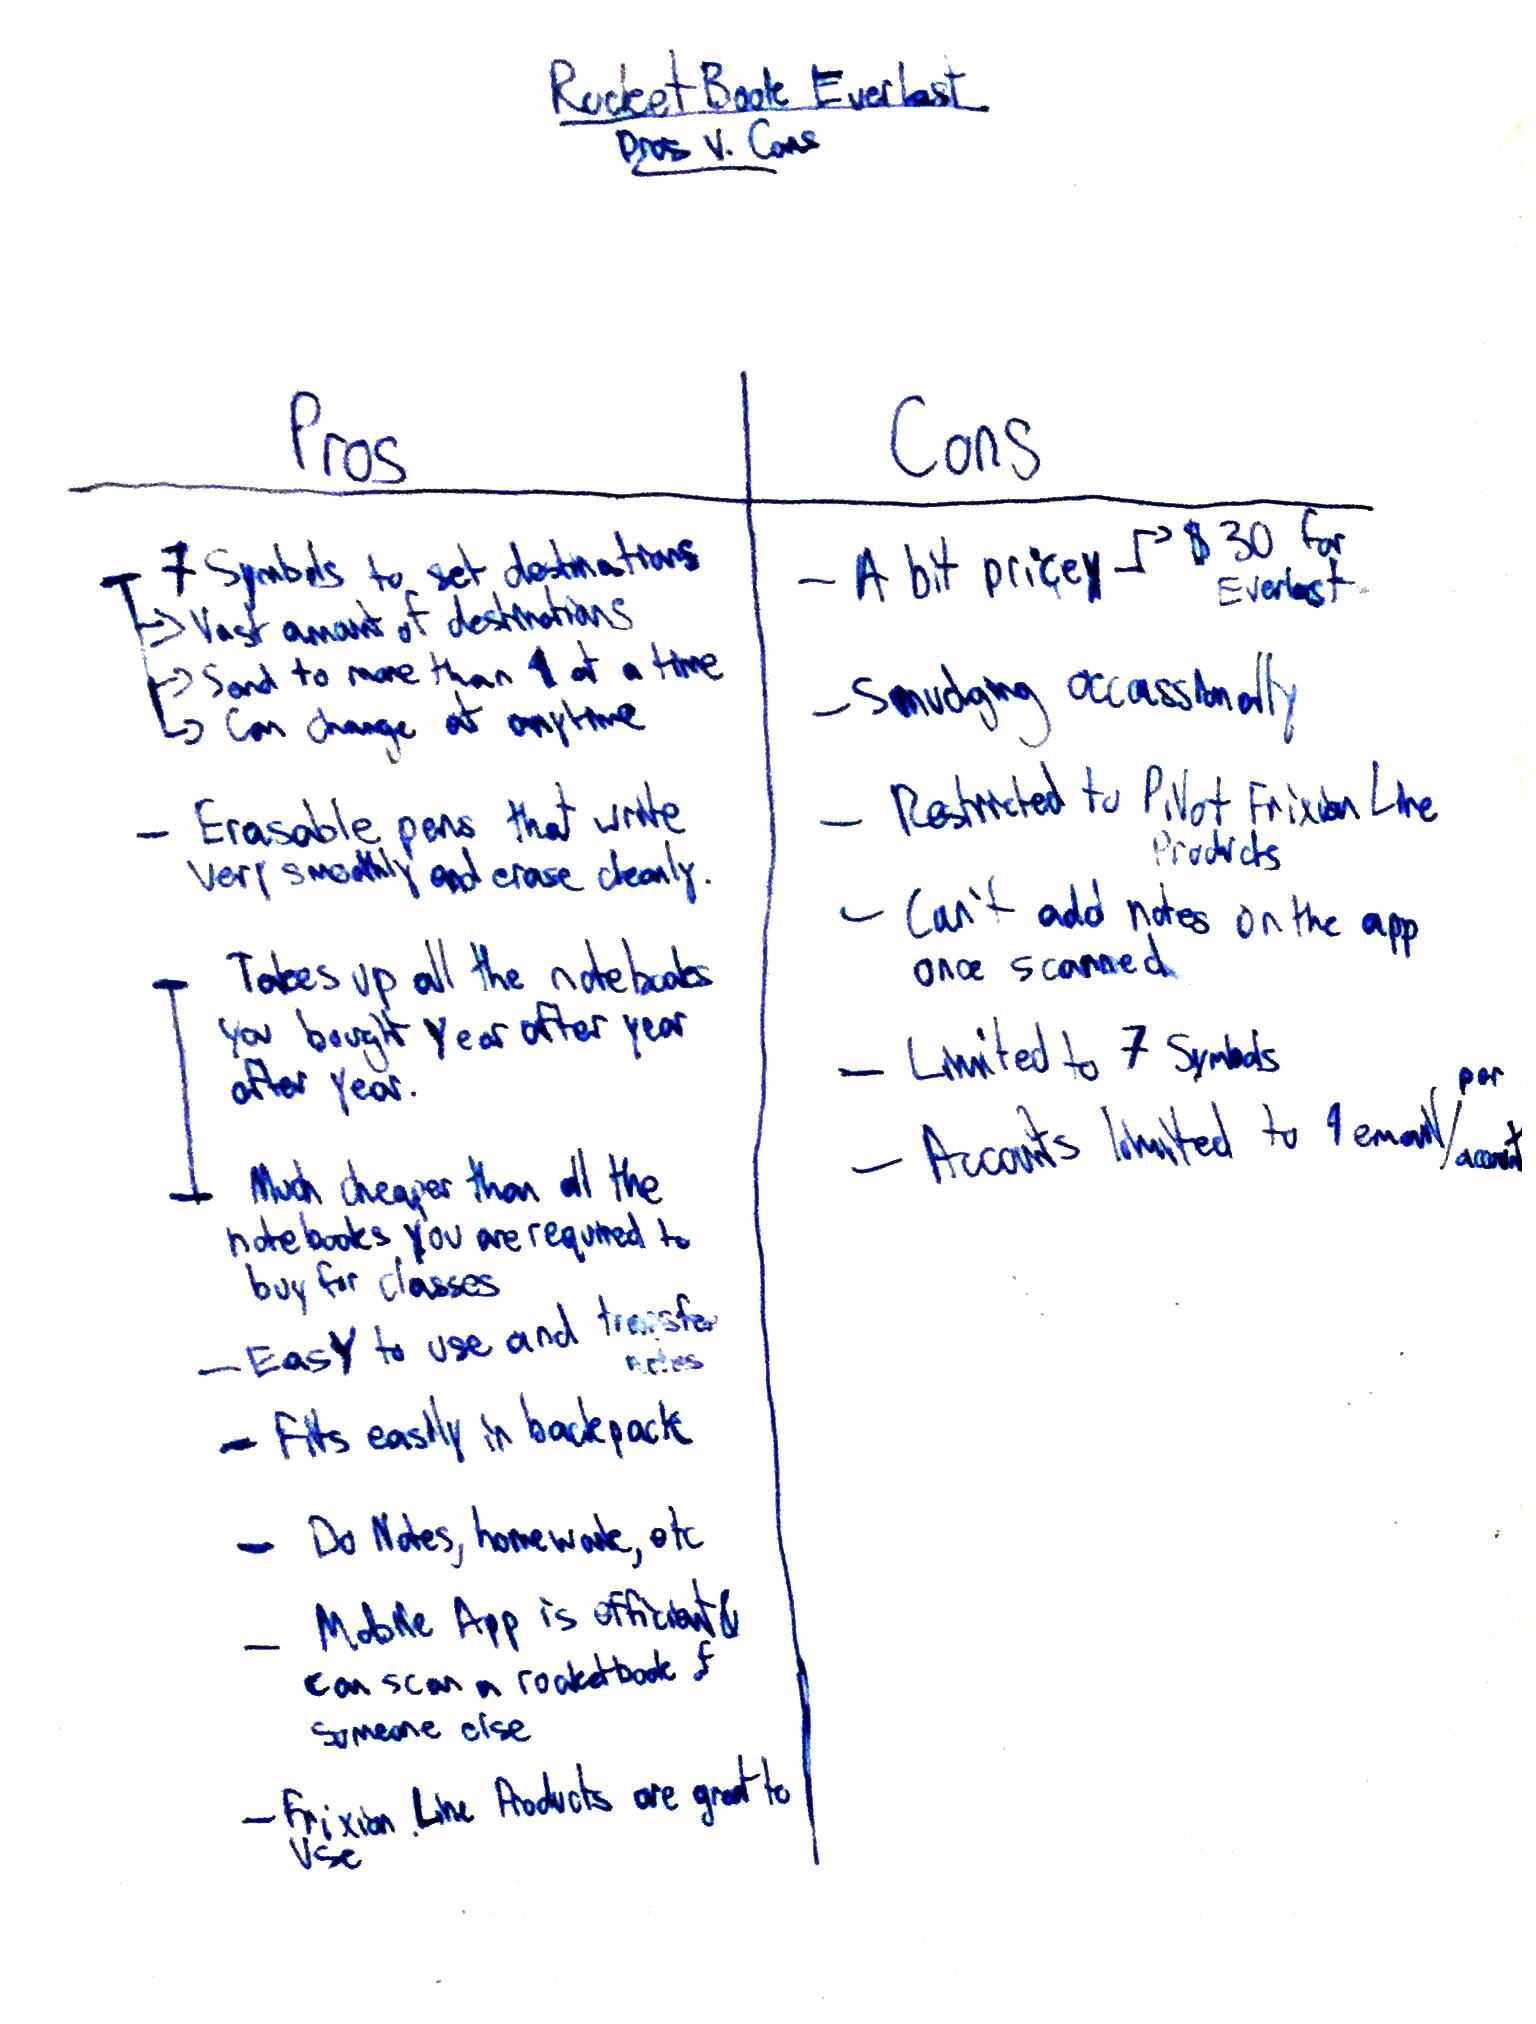 RocketBook Everlast
Pros v. Cons
Pros
- 7 Symbols to set destinations
-> Vast amount of destinations
-> Send to more than 1 at a time
-> Can change at anytime
- Erasable pens that write
very smoothly and erase cleanly.
- Takes up all the notebooks
you bought year after year
after year.
- Much cheaper than all the
notebooks you are required to
buy for classes
- Easy to use and transfer
notes
- Fits easily in backpack
- Do Notes, homework, etc
- Mobile App is efficient &
can scan a rocketbook f
someone else
- Frixion Line Products are great to
Use
Cons
- A bit pricey -> $30 for
Everlast
- Smudging occassionally
- Restricted to Pilot Frixion Line
Products
- Can't add notes on the app
once scanned
- Limited to 7 Symbols
- Accounts limited to 1 email/per
account